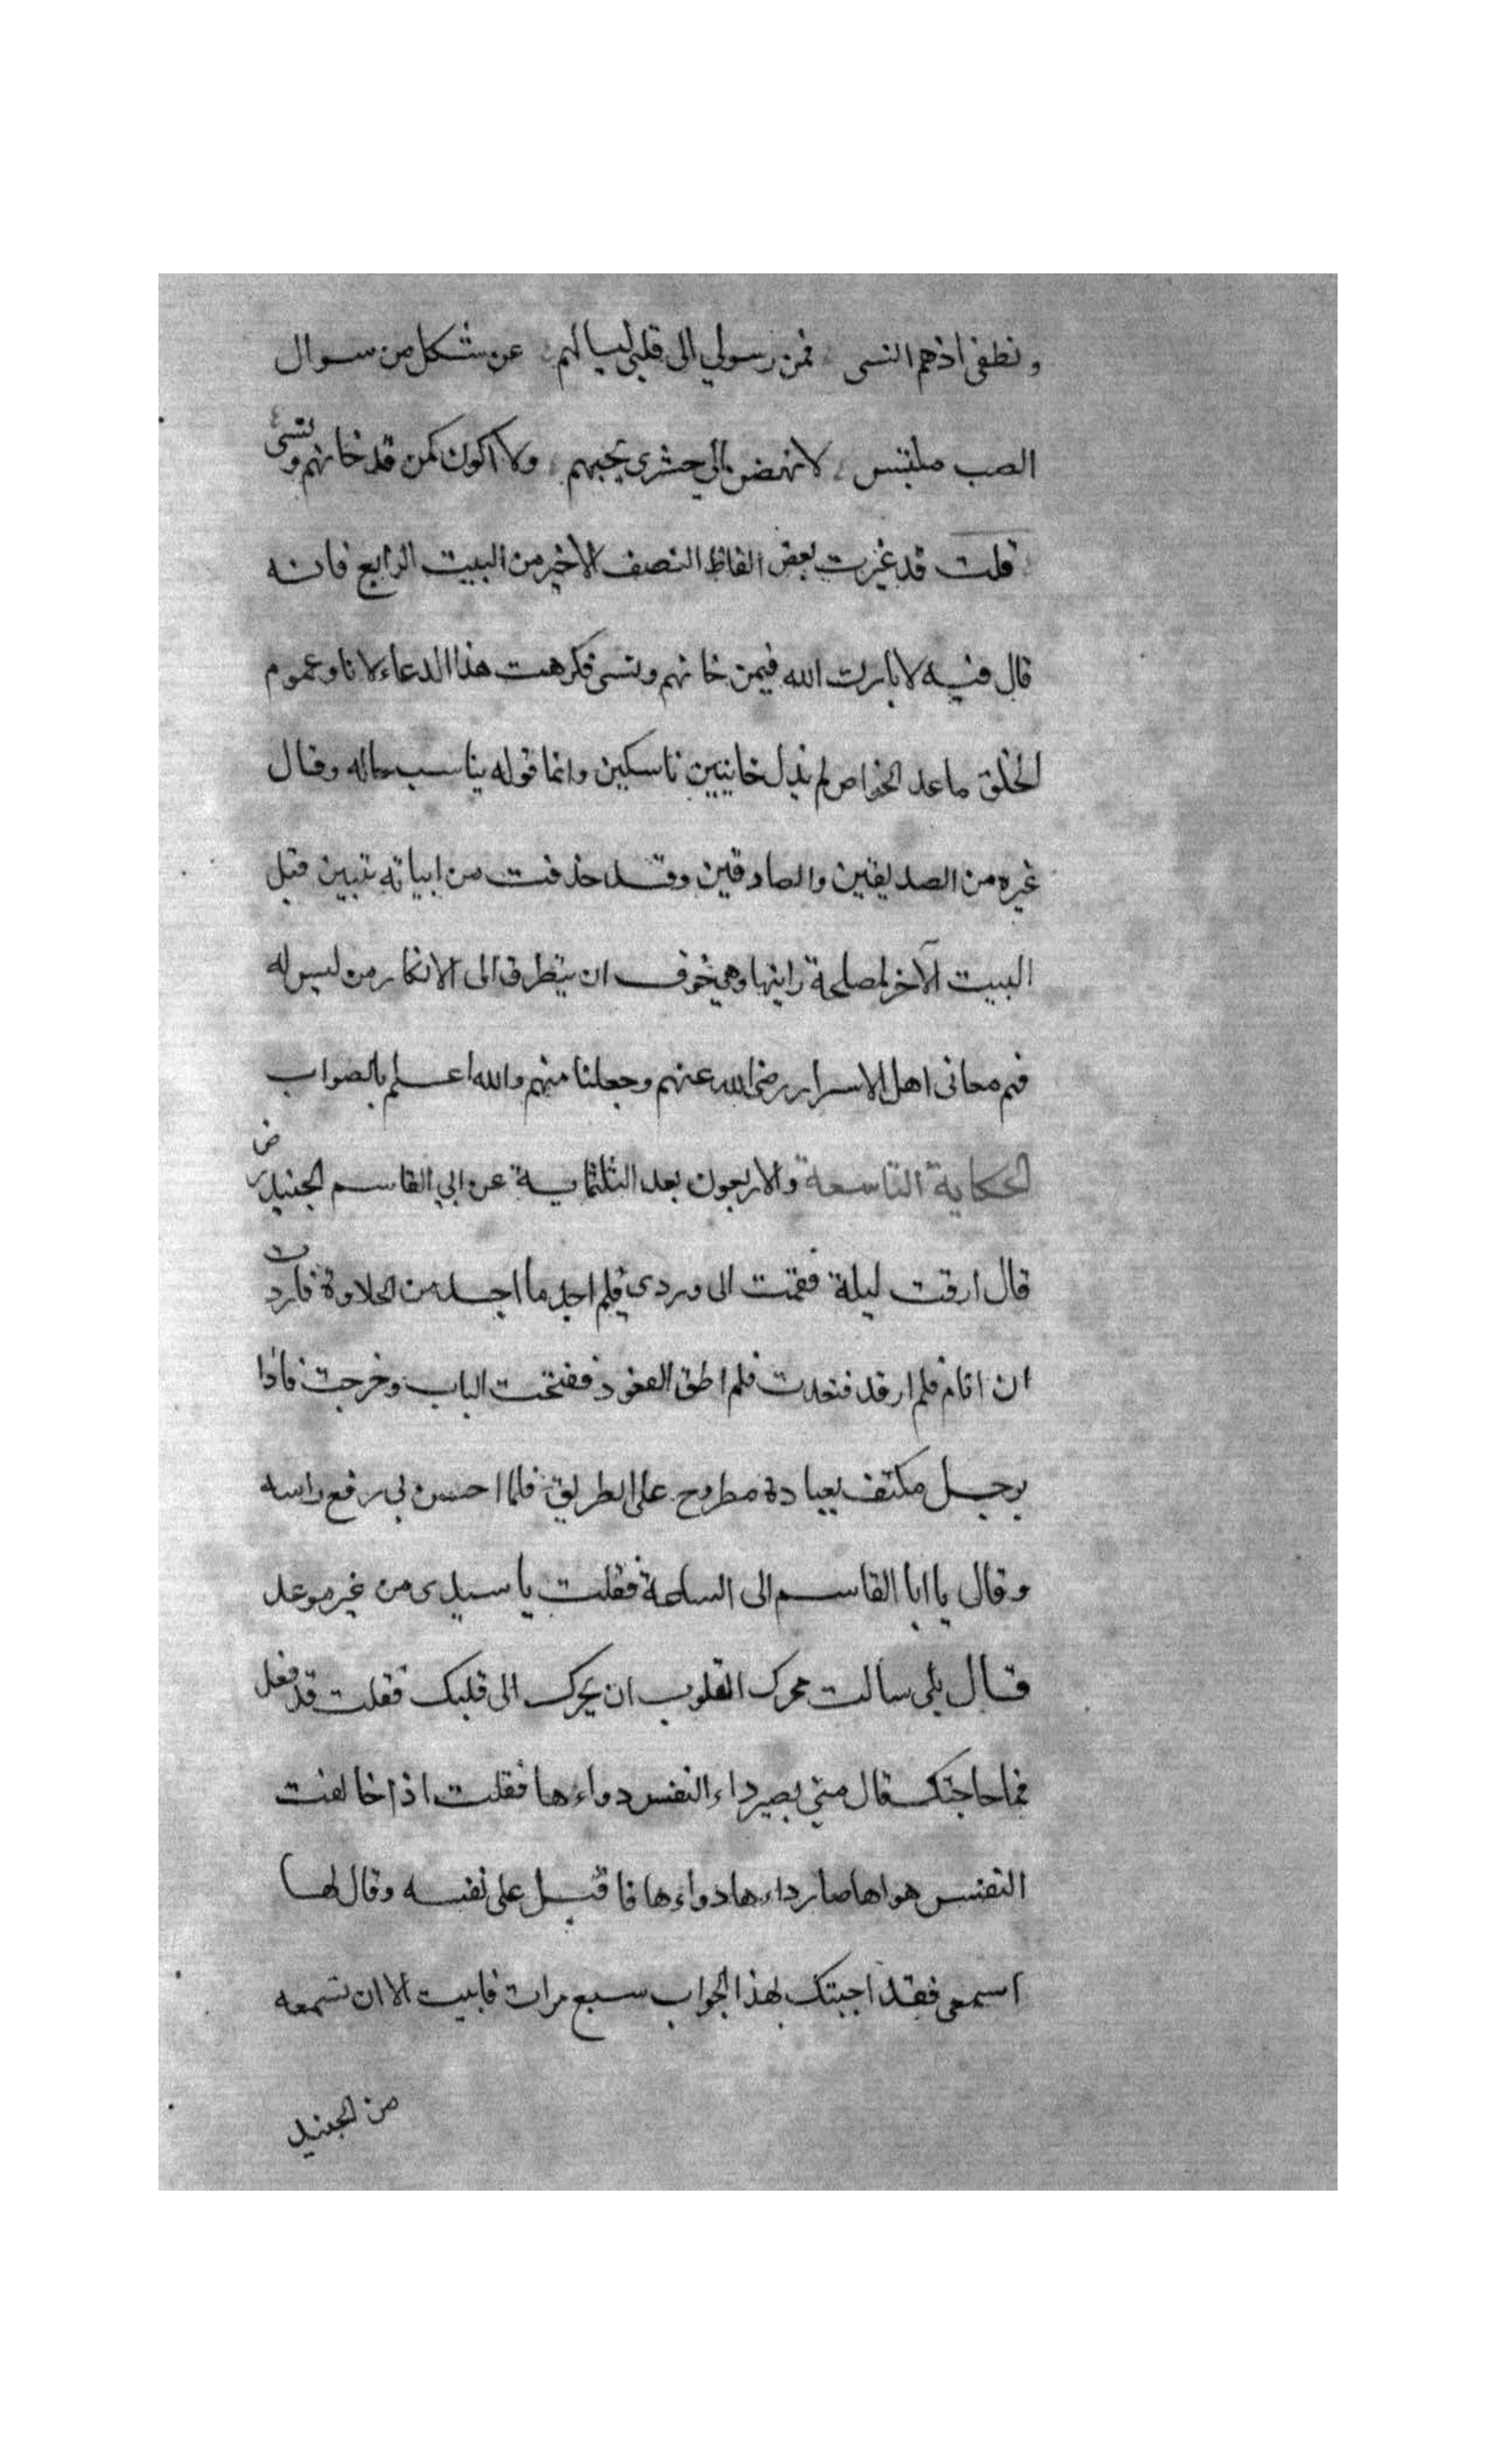 ونطفى اذهم النسى فمن رسولي الى قلبى ليسالهم عن شكل من سوال
الصب ملتبس لانهض الى حشرى بحبهم ولا اكون كمن قد خانهم ونسى
قلت قد غيرت بعض الفاظ النصف الاخير من البيت الرابع فانه
قال فيه لا بارك الله فيمن خانهم ونسى فكرهت هذا الدعاء لانا وعموم
الخلق ما عدا الخواص لم نزل خاينين ناسكين وانما قوله يناسب حاله وقال
غيره من الصديقين والصادقين وقد حذفت من ابياته بيتين قبل
البيت الآخر لمصلحة رايتها وهي خوف ان يتطرق الى الانكار من ليس له
فهم معانى اهل الاسرار رضى الله عنهم وجعلنا منهم والله اعلم بالصواب
الحكاية التاسعة والاربعون بعد الثلثماية عن ابي القاسم الجنيد رض
قال ارقت ليلة فقمت الى وردى فلم اجد ما اجده من الحلاوة فاردت
ان انام فلم ارقد فقعدت فلم اطق القعود ففتحت الباب وخرجت فاذا
برجل مكتف بعباءة مطروح على الطريق فلما احس بي رفع راسه
وقال يا ابا القاسم الى الساعة فقلت يا سيدى من غير موعد
قال بلى سالت محرك القلوب ان يحرك الى قلبك فقلت قد فعل
فما حاجتك قال متى يصير داء النفس دواءها فقلت اذا خالفت
النفس هواها صار داءها دواءها فاقبل على نفسه وقال لها
اسمعى فقد اجبتك بهذا الجواب سبع مرات فابيت الا ان تسمعه
من الجنيد